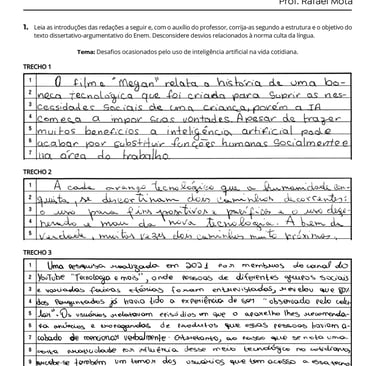 Prof. Rafael Mota
1. Leia as introduções das redações a seguir e, com o auxílio do professor, corrija-as segundo a estrutura e o objetivo do
texto dissertativo-argumentativo do Enem. Desconsidere desvios relacionados à norma culta da língua.
Tema: Desafios ocasionados pelo uso de inteligência artificial na vida cotidiana.
TRECHO 1
1 O filme "Megan" relata a história de uma bo-
2 neca tecnológica que foi criada para suprir as nes-
3 cessidades sociais de uma criança, porém a IA
4 começa a impor suas vontades. Apesar de trazer
5 muitos benefícios a inteligência artificial pode
6 acabar por substituir funções humanas socialmente e
7 na área do trabalho.
TRECHO 2
1 A cada avanço tecnológico que a humanidade con-
2 quista, se descortinam dois caminhos decorrentes:
3 o uso para fins positivos e o uso
4 e mau da nova tecnologia. A bem da
5 verdade, muitas vezes dois caminhos muito próximos.
TRECHO 3
1 Uma pesquisa realizada em 2021 por membros do canal do
2 YouTube "Tecnologia e mais", onde pessoas de diferentes grupos sociais
3 e variadas faixas etárias foram entrevistadas, revelou que
4 dos pesquisados já havia tido a experiência de ser "observado pelo celu-
5 lar". Os usuários relataram episódios em que o aparelho lhes
6 anúncios e propagandas de produtos que essas pessoas haviam a-
7 cabado de mencionar verbalmente. , ao passo que se nota uma
8 nova por influência desse meio tecnológico no cotidiano,
9 também um temor dos usuários que tem acesso a essa